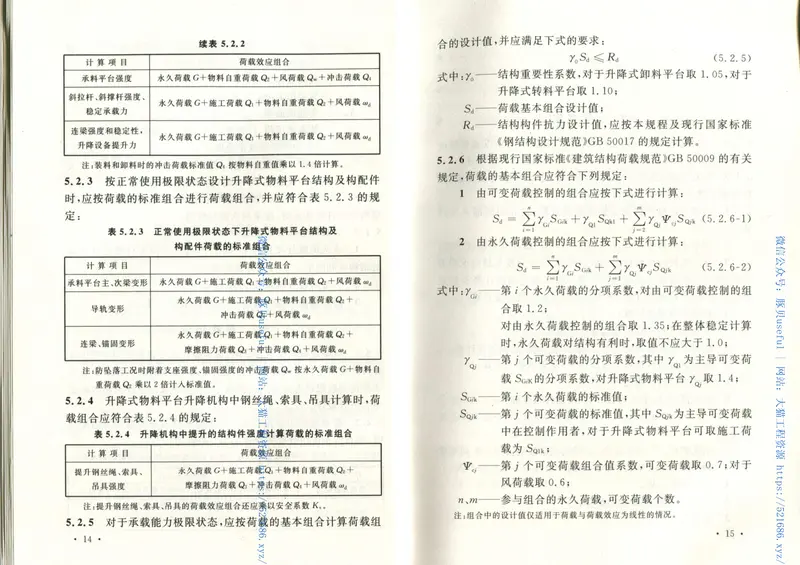 续表 5.2.2
计算项目 荷载效应组合
承料平台强度 永久荷载 G＋物料自重荷载 Q₂＋风荷载 Qw＋冲击荷载 Q₃
斜拉杆、斜撑杆强度、
稳定承载力
永久荷载 G＋施工荷载 Q₁＋物料自重荷载 Q₂＋风荷载 ωd
连梁强度和稳定性，
升降设备提升力
永久荷载 G＋施工荷载 Q₁＋物料自重荷载 Q₂＋风荷载 ωd
注：装料和卸料时的冲击荷载标准值 Q₃ 按物料自重乘以 1.4 倍计算。
5.2.3 按正常使用极限状态设计升降式物料平台结构及构配件
时，应按荷载的标准组合进行荷载组合，并应符合表 5.2.3 的规
定：
表 5.2.3 正常使用极限状态下升降式物料平台结构及
构配件荷载的标准组合
计算项目 荷载效应组合
承料平台主、次梁变形 永久荷载 G＋施工荷载 Q₁＋物料自重荷载 Q₂＋风荷载 ωd
导轨变形
永久荷载 G＋施工荷载 Q₁＋物料自重荷载 Q₂＋
冲击荷载 Q₃＋风荷载 ωd
连梁、锚固变形
永久荷载 G＋施工荷载 Q₁＋物料自重荷载 Q₂＋
摩擦阻力荷载 Q₄＋冲击荷载 Q₃＋风荷载 ωd
注：防坠落工况时附着支座强度、锚固强度的冲击荷载 Qw 按永久荷载 G＋物料自
重荷载 Q₂ 乘以 2 倍计入标准值。
5.2.4 升降式物料平台升降机构中钢丝绳、索具、吊具计算时，荷
载组合应符合表 5.2.4 的规定：
表 5.2.4 升降机构中提升的结构件强度计算荷载的标准组合
计算项目 荷载效应组合
提升钢丝绳、索具、
吊具强度
永久荷载 G＋施工荷载 Q₁＋物料自重荷载 Q₂＋
摩擦阻力荷载 Q₄＋冲击荷载 Q₃＋风荷载 ωd
注：提升钢丝绳、索具、吊具的荷载效应组合还应乘以安全系数 K₁。
5.2.5 对于承载能力极限状态，应按荷载的基本组合计算荷载组
· 14 ·
合的设计值，并应满足下式的要求：
γ₀Sd ≤ Rd (5.2.5)
式中：γ₀——结构重要性系数，对于升降式卸料平台取 1.05，对于
升降式转料平台取 1.10；
Sd——荷载基本组合设计值；
Rd——结构构件抗力设计值，应按本规程及现行国家标准
《钢结构设计规范》GB 50017 的规定计算。
5.2.6 根据现行国家标准《建筑结构荷载规范》GB 50009 的有关
规定，荷载的基本组合应符合下列规定：
1 由可变荷载控制的组合应按下式进行计算：
Sd = ∑ⁿᵢ₌₁ γGi SGik + γQ1 SQk1 + ∑ᵐⱼ₌₂ γQj Ψcj SQjk (5.2.6-1)
2 由永久荷载控制的组合应按下式进行计算：
Sd = ∑ⁿᵢ₌₁ γGi SGik + ∑ᵐⱼ₌₁ γQj Ψcj SQjk (5.2.6-2)
式中：γGi——第 i 个永久荷载的分项系数，对由可变荷载控制的组
合取 1.2；
对由永久荷载控制的组合取 1.35；在整体稳定计算
时，永久荷载对结构有利时，取值不应大于 1.0；
γQj——第 j 个可变荷载的分项系数，其中 γQ1 为主导可变荷
载 SGiK 的分项系数，对升降式物料平台 γQj 取 1.4；
SGik——第 i 个永久荷载的标准值；
SQjk——第 j 个可变荷载的标准值，其中 SQjk 为主导可变荷载
中在控制作用者，对于升降式物料平台可取施工荷
载为 SQ1k；
Ψcj——第 j 个可变荷载组合值系数，可变荷载取 0.7；对于
风荷载取 0.6；
n、m——参与组合的永久荷载，可变荷载个数。
注：组合中的设计值仅适用于荷载与荷载效应为线性的情况。
· 15 ·
微信公众号：豚贝useful | 网站：大猫工程资源 https://521686.xyz/
微信公众号：豚贝useful | 网站：大猫工程资源 https://521686.xyz/